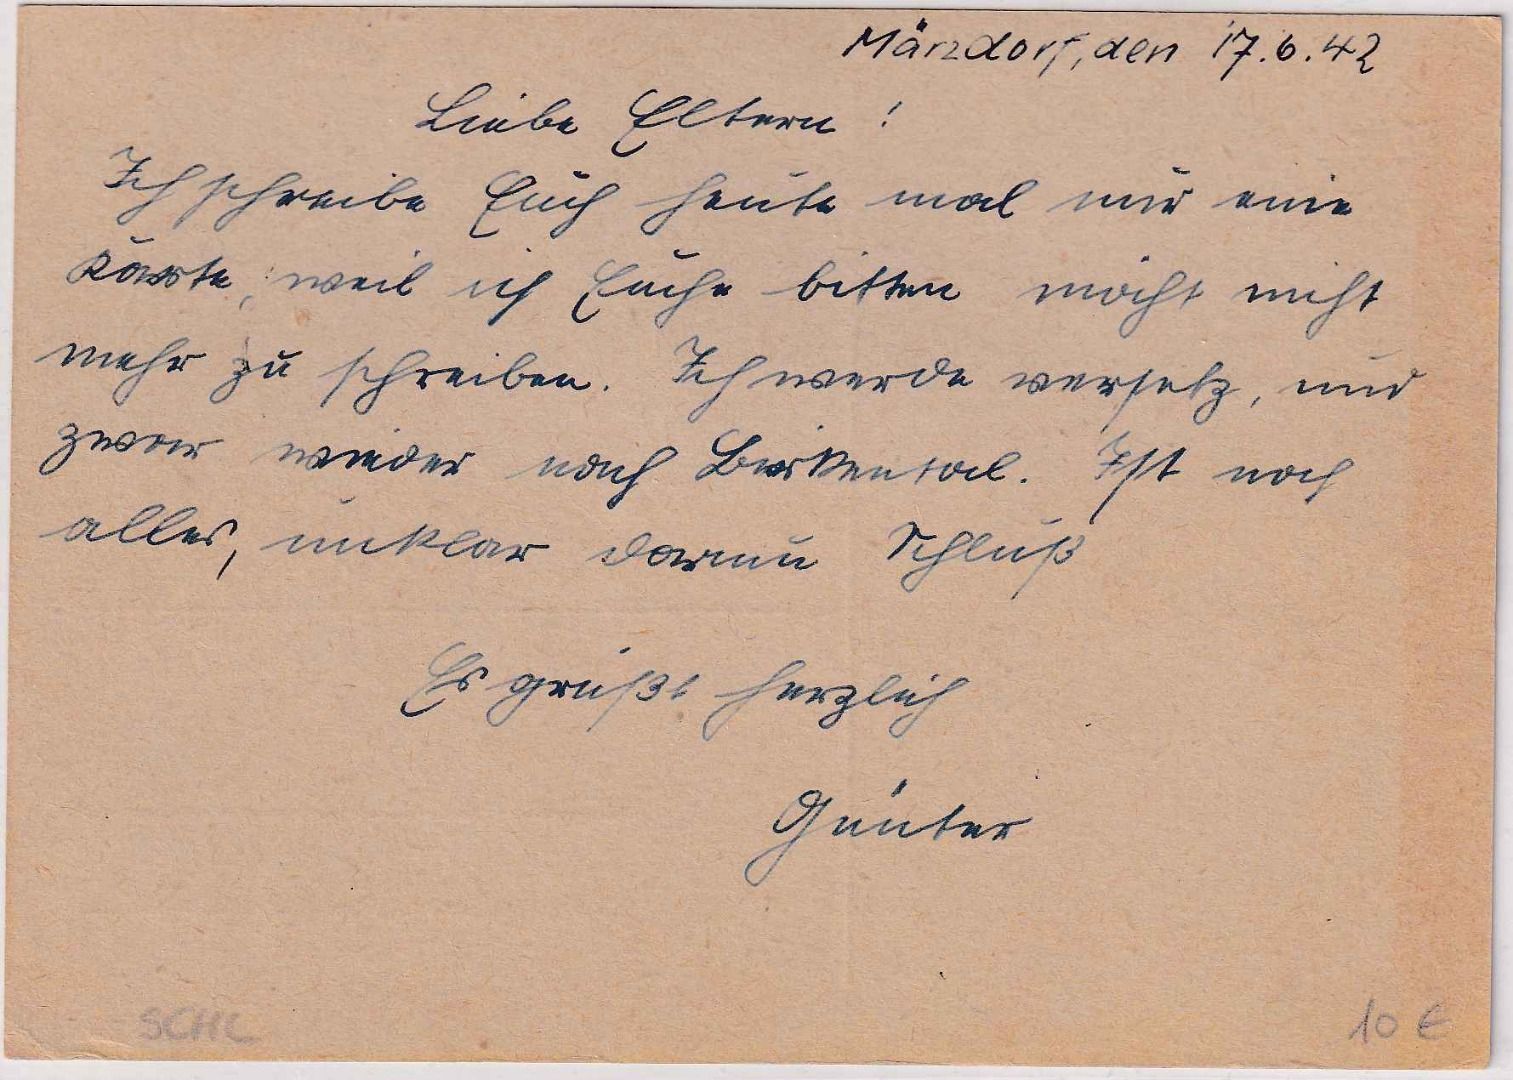 Märzdorf, den 17.6.42
Liebe Eltern!
Ich schreibe Euch heute mal nur eine
Karte, weil ich Euche bitten möcht nicht
mehr zu schreiben. Ich werde versetz, und
zwar wieder nach Birkental. Ist noch
alles, unklar darum Schluß
Es grüßt herzlich
Günter
SCHL
10 €